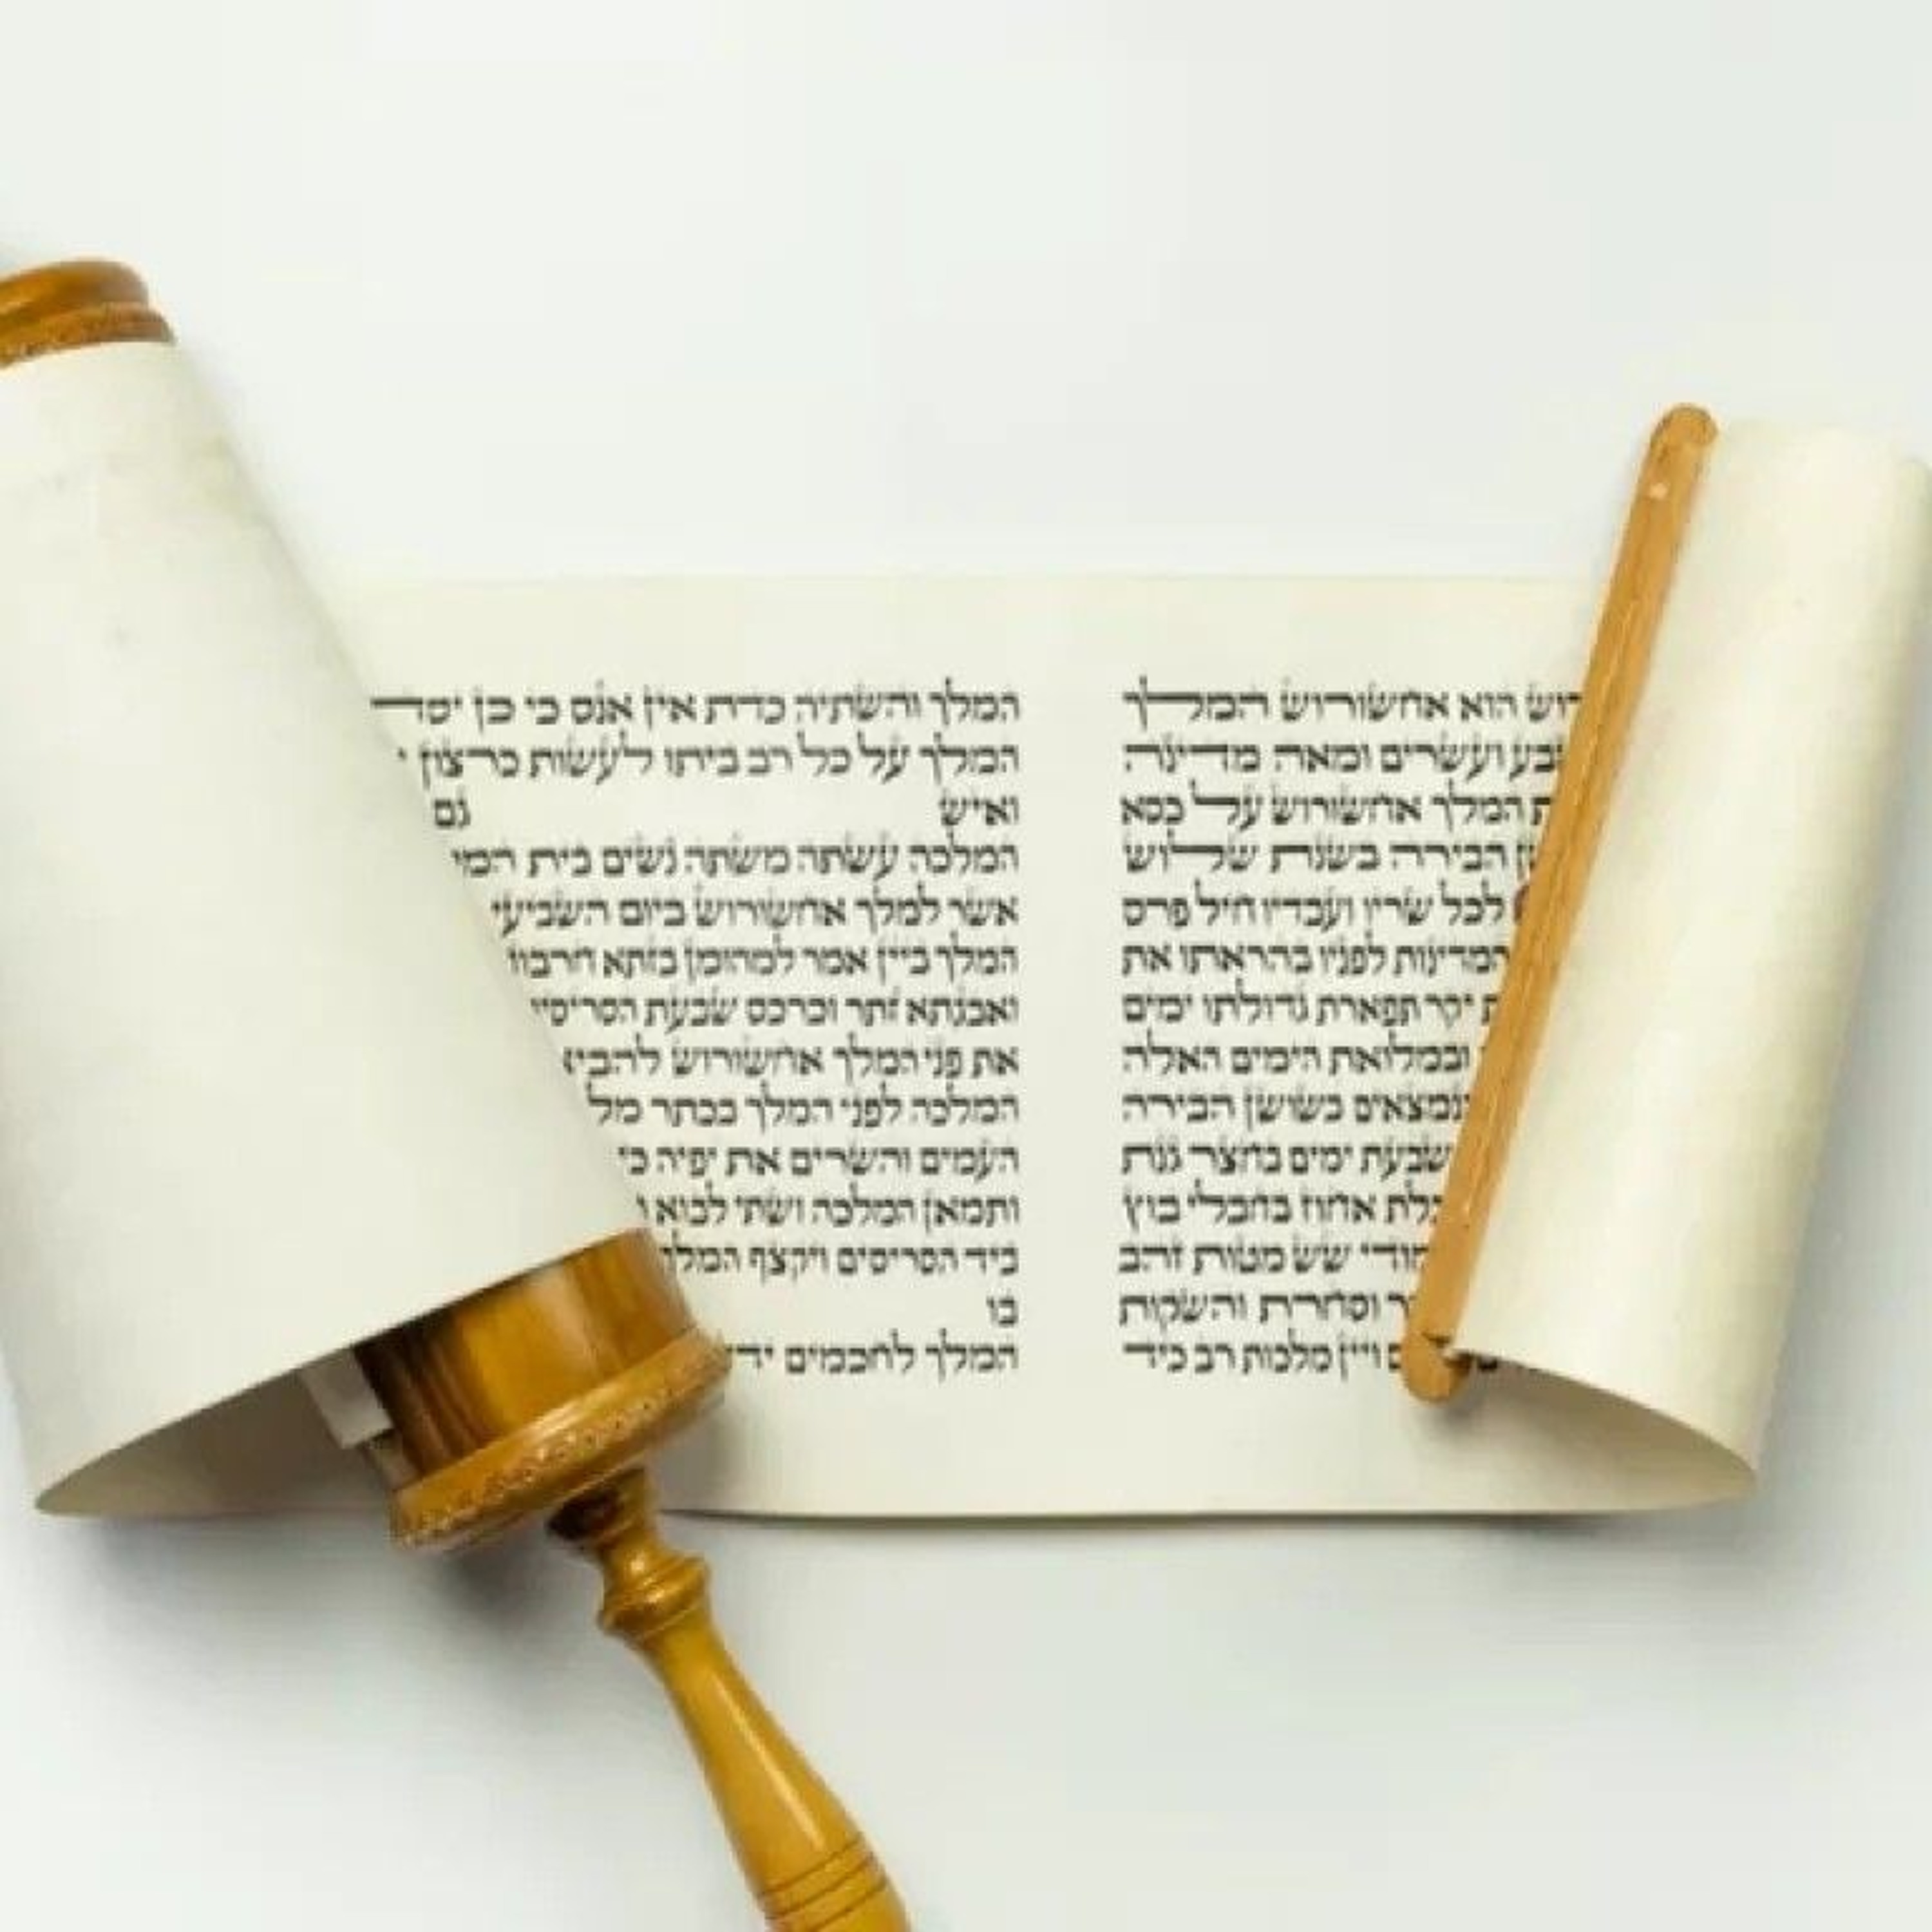 הוא אחשורוש המלך
ועשרים ומאה מדינה
המלך אחשורוש על כסא
הבירה בשנת שלוש
לכל שריו ועבדיו חיל פרס
המדינות לפניו בהראתו את
יקר תפארת גדולתו ימים
ובמלואת הימים האלה
הנמצאים בשושן הבירה
שבעת ימים בחצר גנת
אחוז בחבלי בוץ
שש מטות זהב
וסחרת והשקות
ויין מלכות רב כיד
המלך והשתיה כדת אין אנס כי כן יסד
המלך על כל רב ביתו לעשות כרצון
ואיש גם
המלכה עשתה משתה נשים בית
אשר למלך אחשורוש ביום השביעי
המלך ביין אמר למהומן בזתא
ואבגתא זתר וכרכס שבעת
את פני המלך אחשורוש להביא
המלכה לפני המלך בכתר
העמים והשרים את יפיה כי
ותמאן המלכה ושתי לבוא
ביד הסריסים ויקצף המלך
בו
המלך לחכמים